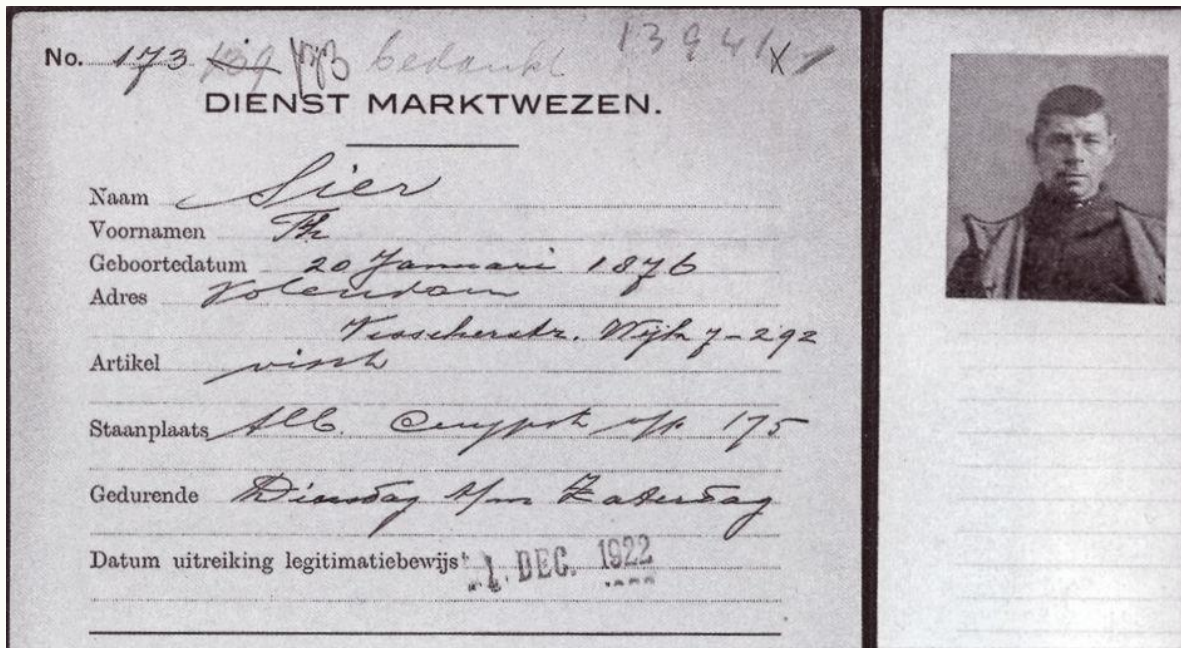 No. 173 139 173 bedankt 13941 X
DIENST MARKTWEZEN.
Naam Sier
Voornamen Th
Geboortedatum 20 Januari 1876
Adres Volendam
Visscherstr. Wijk 7-292
Artikel visch
Staanplaats Alb. Cuypst v/p. 175
Gedurende Dinsdag t/m Zaterdag
Datum uitreiking legitimatiebewijs 1. DEC. 1922